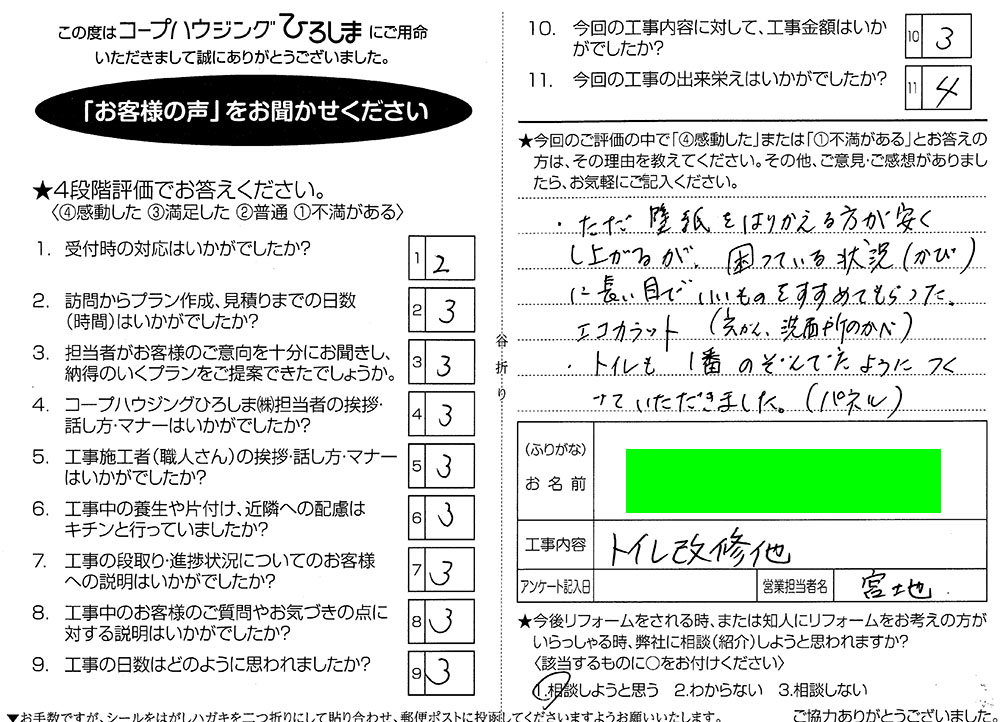 この度はコープハウジングひろしまにご用命
いただきまして誠にありがとうございました。
「お客様の声」をお聞かせください
★4段階評価でお答えください。
〈④感動した ③満足した ②普通 ①不満がある〉
1. 受付時の対応はいかがでしたか?
1 2
2. 訪問からプラン作成、見積りまでの日数
(時間)はいかがでしたか?
2 3
3. 担当者がお客様のご意向を十分にお聞きし、
納得のいくプランをご提案できたでしょうか。
3 3
4. コープハウジングひろしま㈱担当者の挨拶・
話し方・マナーはいかがでしたか?
4 3
5. 工事施工者(職人さん)の挨拶・話し方・マナー
はいかがでしたか?
5 3
6. 工事中の養生や片付け、近隣への配慮は
キチンと行っていましたか?
6 3
7. 工事の段取り・進捗状況についてのお客様
への説明はいかがでしたか?
7 3
8. 工事中のお客様のご質問やお気づきの点に
対する説明はいかがでしたか?
8 3
9. 工事の日数はどのように思われましたか?
9 3
▼お手数ですが、シールをはがしハガキを二つ折りにして貼り合わせ、郵便ポストに投函してくださいますようお願いいたします。
谷折り
10. 今回の工事内容に対して、工事金額はいか
がでしたか?
10 3
11. 今回の工事の出来栄えはいかがでしたか?
11 4
★今回のご評価の中で「④感動した」または「①不満がある」とお答えの
方は、その理由を教えてください。その他、ご意見・ご感想がありまし
たら、お気軽にご記入ください。
・ただ 壁紙をはりかえる方が安く
し上がるが、困っている状況(かび)
に長い目でいいものをすすめてもらった。
エコカラット(玄かん、洗面所のかべ)
・トイレも 1番のぞんでたようにつく
っていただきました。(パネル)
(ふりがな)
お名前
工事内容 トイレ改修他
アンケート記入日 営業担当者名 宮地
★今後リフォームをされる時、または知人にリフォームをお考えの方が
いらっしゃる時、弊社に相談(紹介)しようと思われますか?
〈該当するものに○をお付けください〉
1.相談しようと思う 2.わからない 3.相談しない
ご協力ありがとうございました。